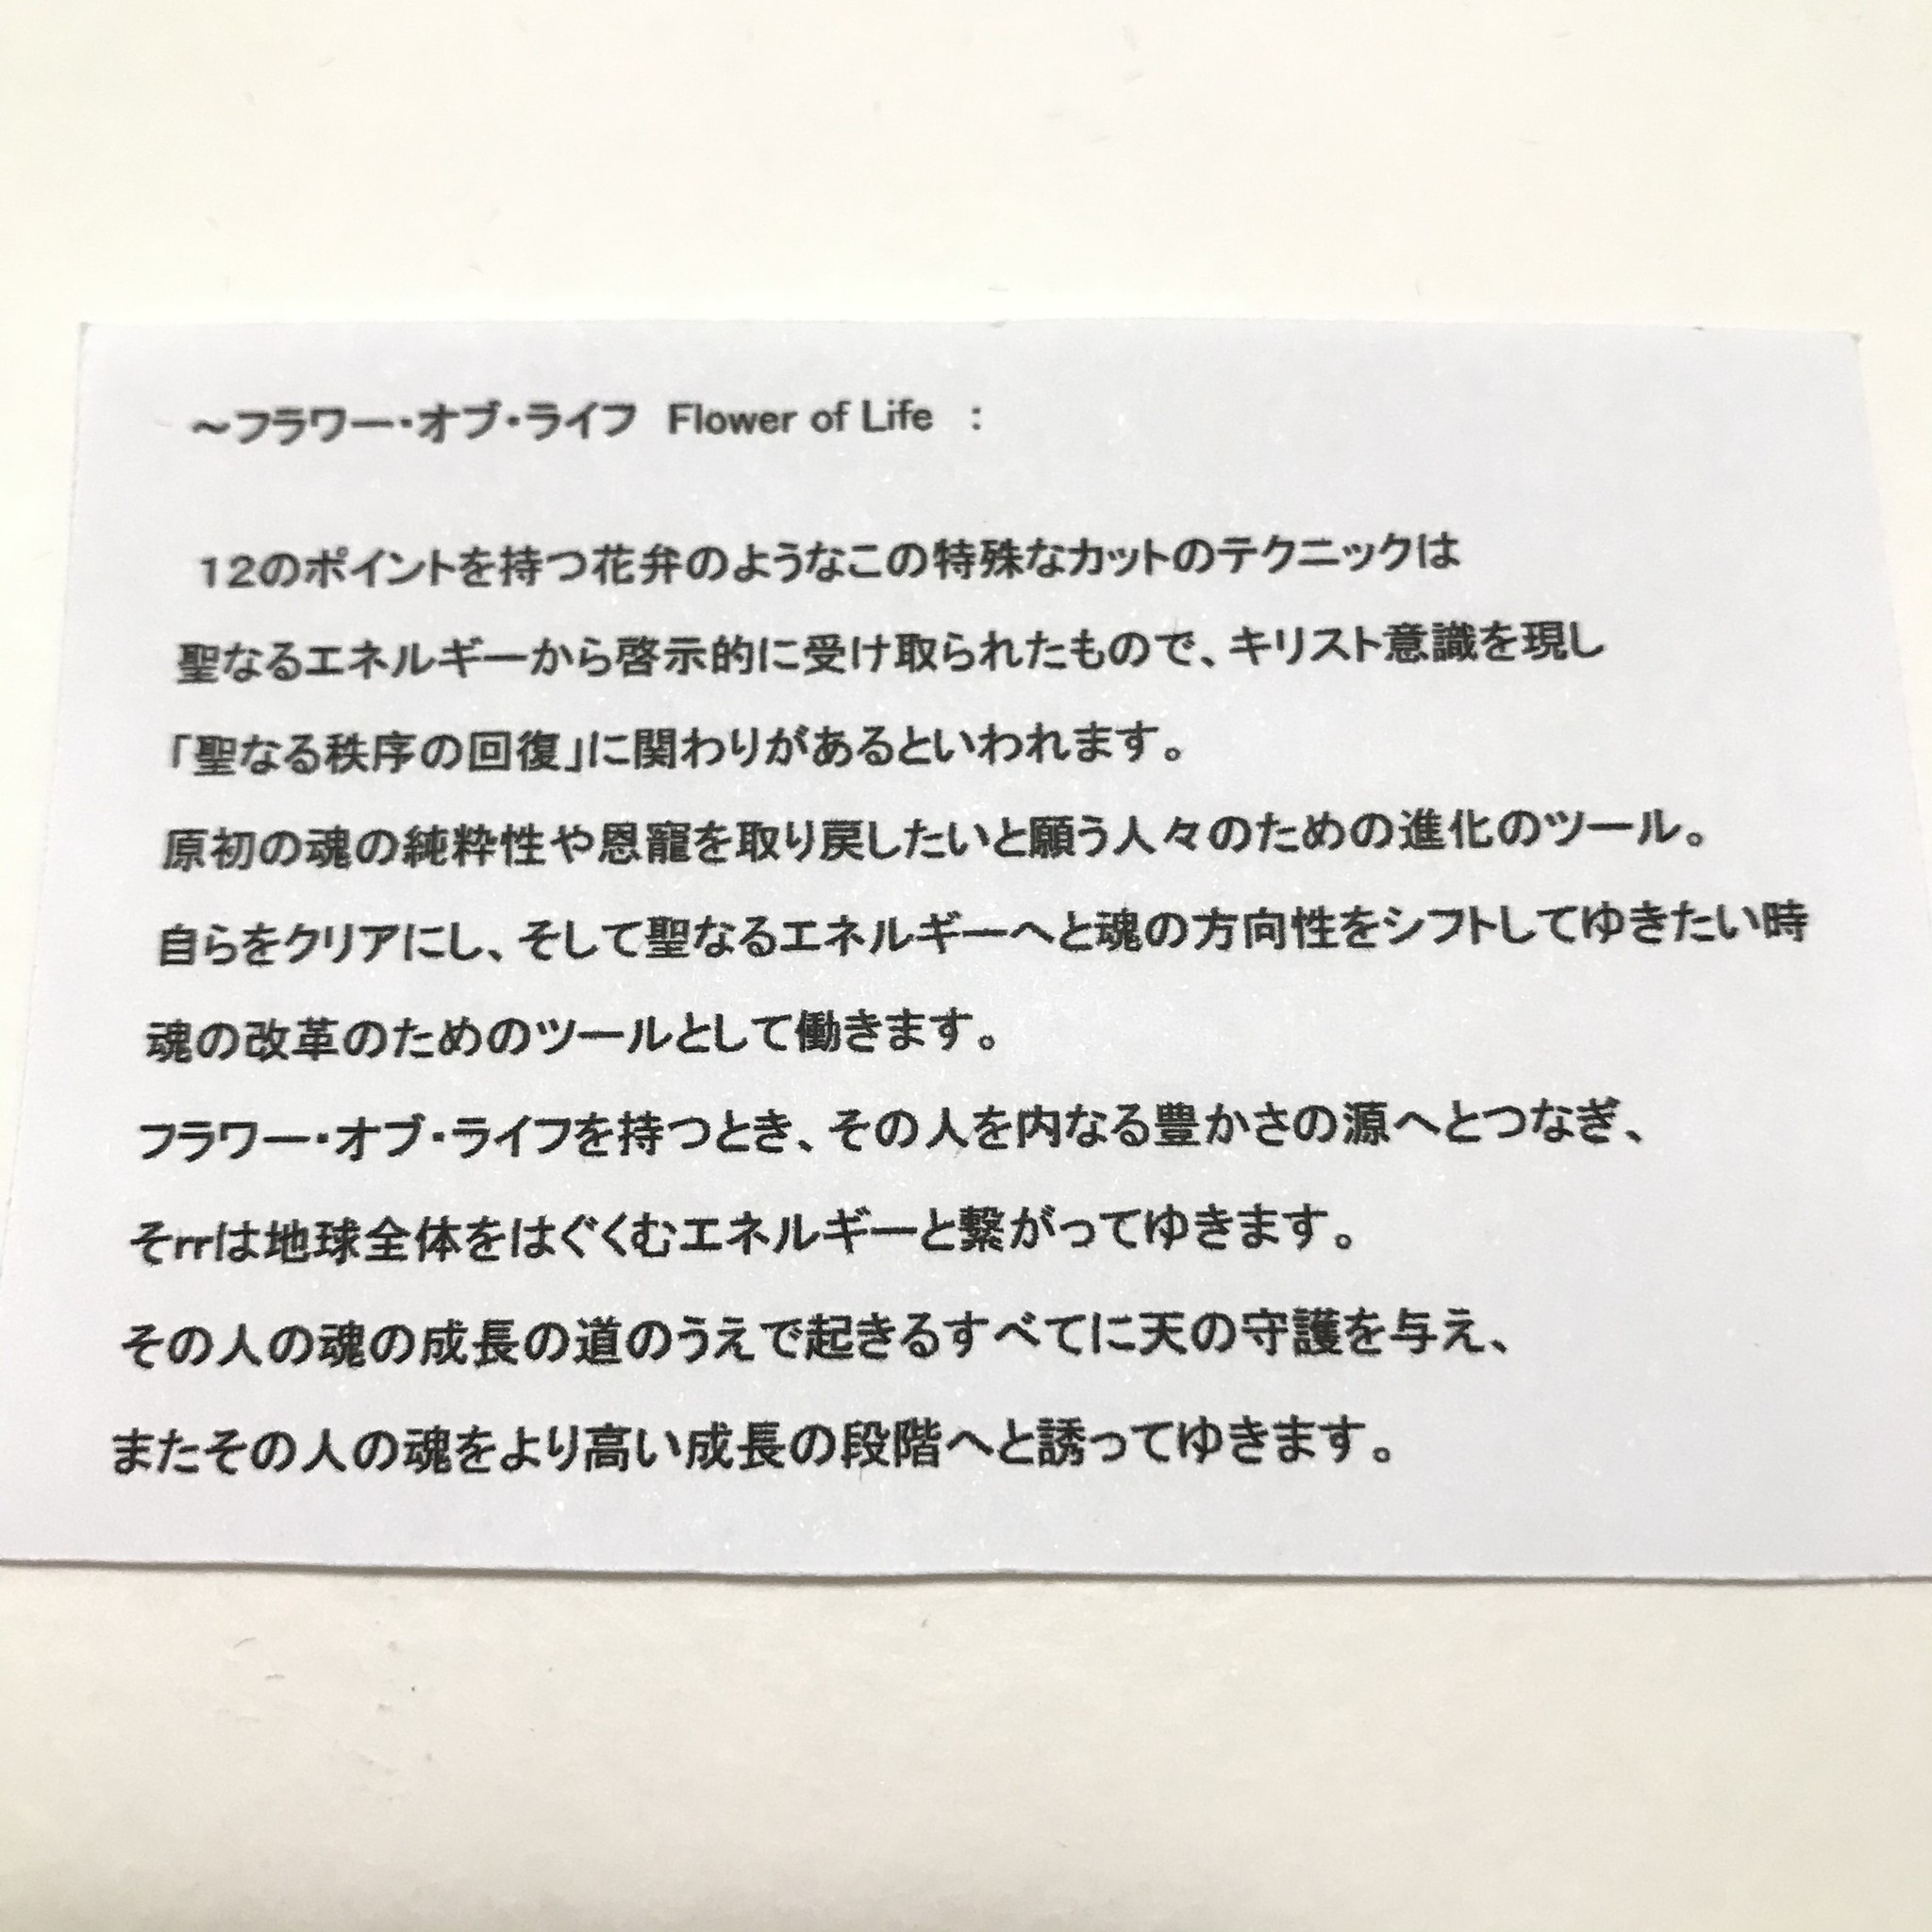 ～フラワー・オブ・ライフ　Flower of Life　：
12のポイントを持つ花弁のようなこの特殊なカットのテクニックは
聖なるエネルギーから啓示的に受け取られたもので、キリスト意識を現し
「聖なる秩序の回復」に関わりがあるといわれます。
原初の魂の純粋性や恩寵を取り戻したいと願う人々のための進化のツール。
自らをクリアにし、そして聖なるエネルギーへと魂の方向性をシフトしてゆきたい時
魂の改革のためのツールとして働きます。
フラワー・オブ・ライフを持つとき、その人を内なる豊かさの源へとつなぎ、
そrrは地球全体をはぐくむエネルギーと繋がってゆきます。
その人の魂の成長の道のうえで起きるすべてに天の守護を与え、
またその人の魂をより高い成長の段階へと誘ってゆきます。